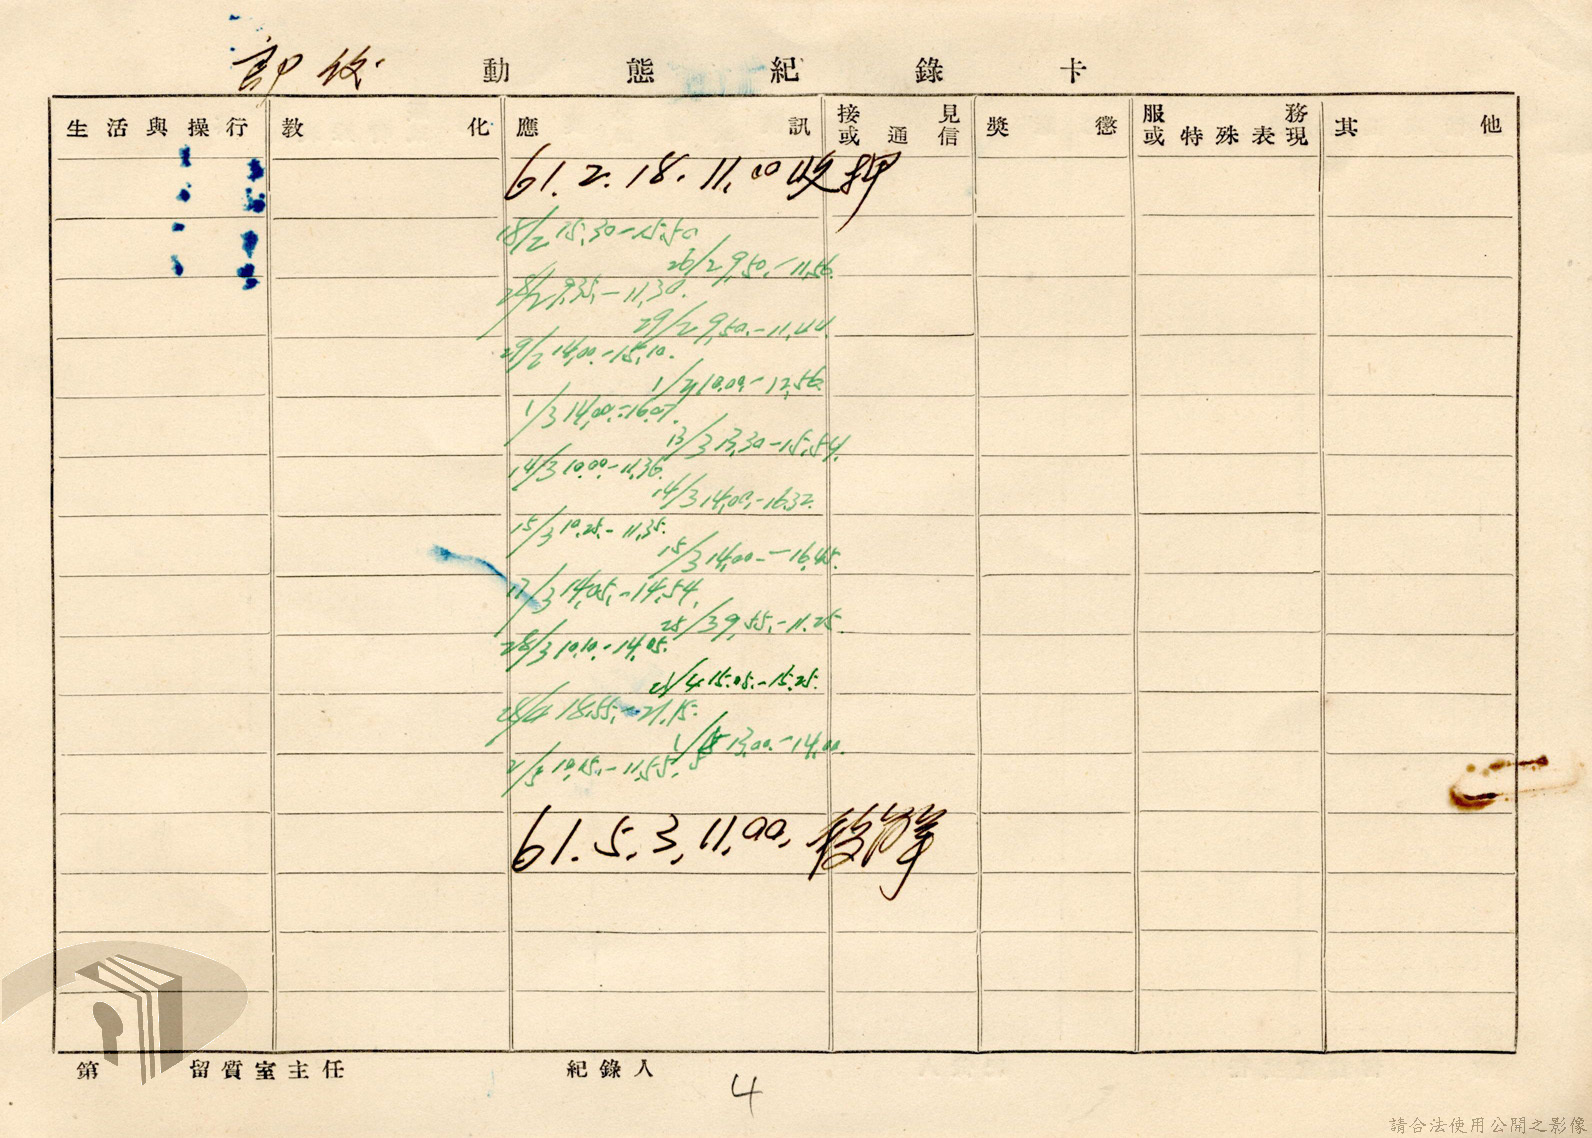 動態紀錄卡
生活與操行 教化 應訊 接見或通信 獎懲 服務或特殊表現 其他
61.2.18.11.00收押
18/2 15.30-15.50
26/2 9.50.-11.56.
28/2 9.35.-11.30.
29/2 9.50.-11.44.
29/2 14.00.-15.10.
10.00.-12.56.
1/3 14.00.-16.07.
13/3 13.30-15.54.
14/3 10.00.-11.36.
14/3 14.00.-16.32.
15/3 10.25.-11.35.
15/3 14.00-16.45.
17/3 14.05.-14.54.
25/3 9.55.-11.25
28/3 10.10.-14.05.
4 15.05.-15.25.
28/4 18.55.-21.15.
1/5 13.00.-14.00.
2/5 10.15.-11.55.
61.5.3.11.00.
第 留質室主任 紀錄人
4
請合法使用公開之影像